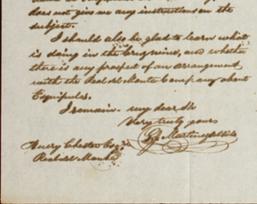 does not give me any instruction on the
subject.
I should also be glad to learn what
is doing in the and whether
there is any prospect of an arrangement
with the Real del Monte Company about
I remain my dear Sir
Very truly yours
Henry Chester Esqr
Real del Monte